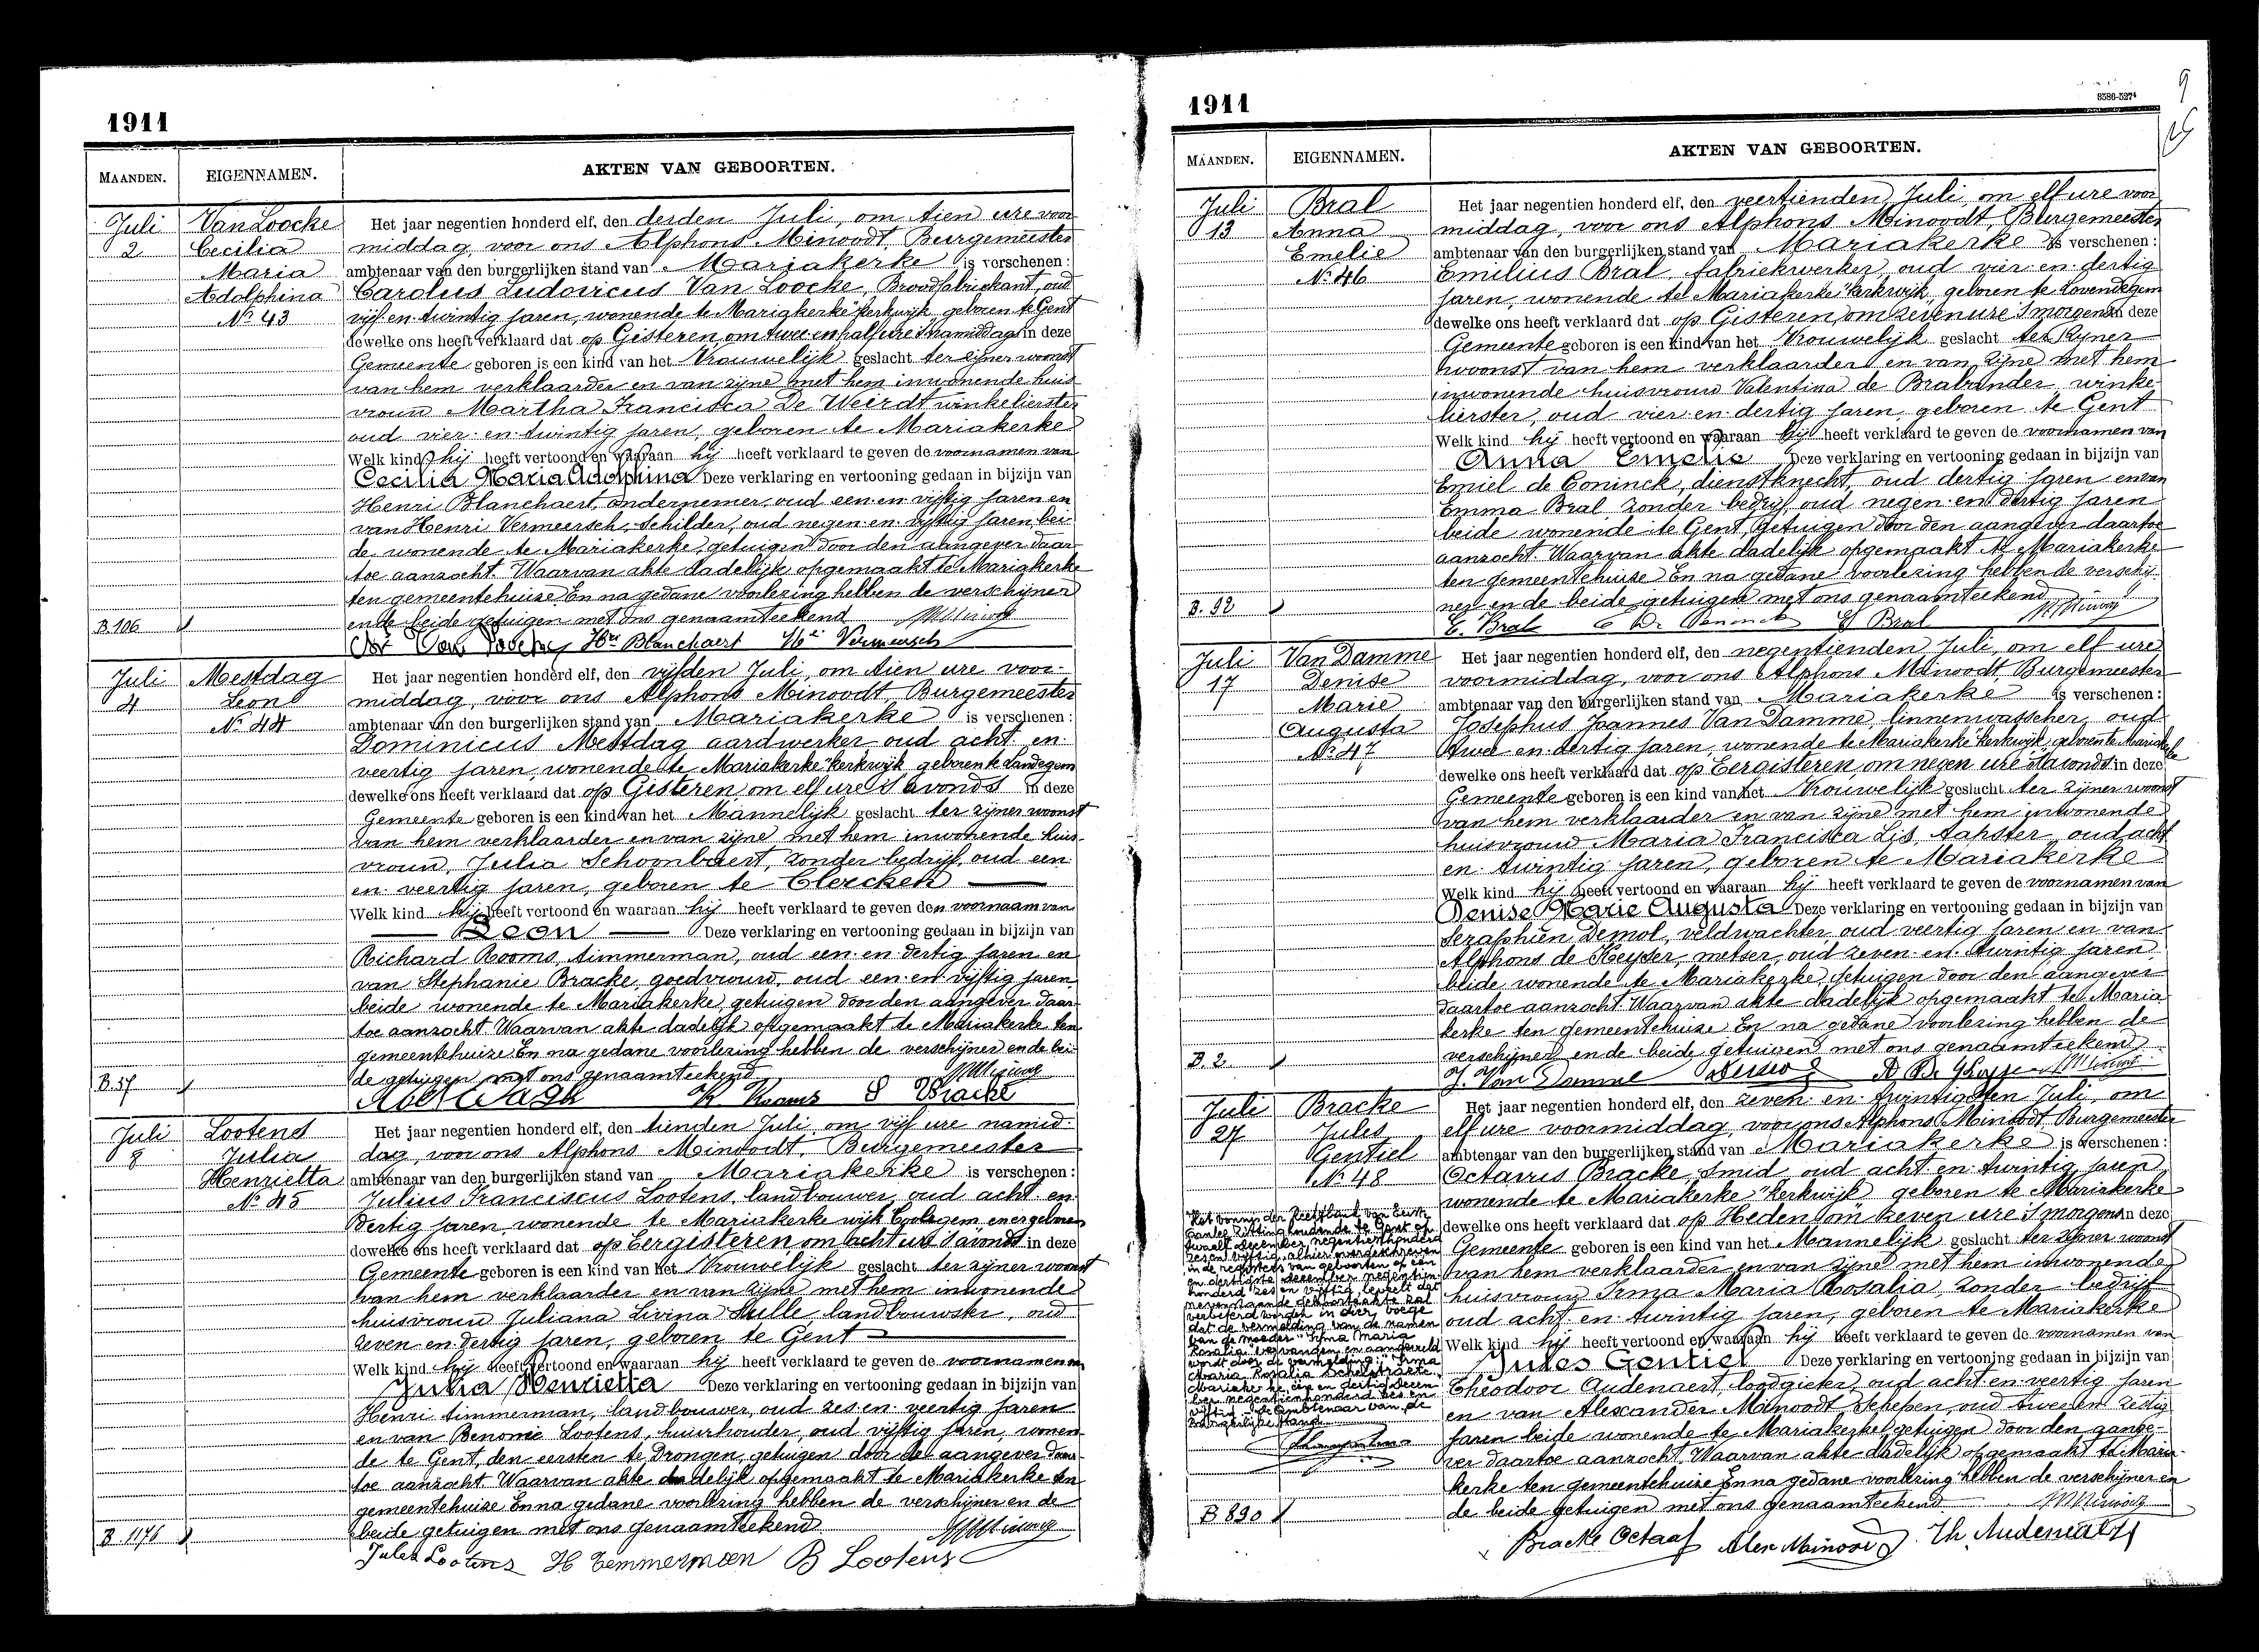 1911
MAANDEN. EIGENNAMEN. AKTEN VAN GEBOORTEN.
Juli
2
Van Loocke
Cecilia
Maria
Adolphina
No 43
B. 106
Het jaar negentien honderd elf, den derden Juli, om tien ure voor
middag, voor ons Alphons Minoodt, Burgemeester
ambtenaar van den burgerlijken stand van Mariakerke is verschenen:
Carolus Ludovicus Van Loocke, Broodfabriekant, oud
vijf en twintig jaren, wonende te Mariakerke "kerkwijk, geboren te Gent
dewelke ons heeft verklaard dat op Gisteren, om twee en half ure 's namiddags in deze
Gemeente geboren is een kind van het Vrouwelijk geslacht ter zijner woonst
van hem verklaarder en van zijne met hem inwonende huis
vrouw Martha Francisca De Weirdt winkelierster
oud vier en twintig jaren, geboren te Mariakerke
Welk kind hij heeft vertoond en waaraan hij heeft verklaard te geven de voornamen van
Cecilia Maria Adolphina Deze verklaring en vertooning gedaan in bijzijn van
Henri Blanchaert, ondernemer, oud een en vijftig jaren en
van Henri Vermeersch, Schilder, oud negen en vijftig jaren bei
de wonende te Mariakerke, getuigen door den aangever daar
toe aanzocht. Waarvan akte dadelijk opgemaakt te Mariakerke
ten gemeentehuize En na gedane voorlezing hebben de verschijner
en de beide getuigen met ons genaamteekend
Van Loocke Hri Blanchaert Hri Vermeersch
Juli
4
Mestdag
Leon
No 44
B. 37
Het jaar negentien honderd elf, den vijfden Juli, om tien ure voor-
middag, voor ons Alphons Minoodt, Burgemeester
ambtenaar van den burgerlijken stand van Mariakerke is verschenen:
Dominicus Mestdag aardwerker oud acht en
veertig jaren, wonende te Mariakerke "kerkwijk geboren te Landegem
dewelke ons heeft verklaard dat op Gisteren, om elf ure 's avonds in deze
Gemeente geboren is een kind van het Mannelijk geslacht ter zijner woonst
van hem verklaarder en van zijne met hem inwonende huis-
vrouw, Julia Schoonbaert, zonder bedrijf, oud een
en veertig jaren, geboren te Clercken
Welk kind hij heeft vertoond en waaraan hij heeft verklaard te geven den voornaam van
Leon Deze verklaring en vertooning gedaan in bijzijn van
Richard Rooms, timmerman, oud een en dertig jaren en
van Stephanie Bracke, goedvrouw, oud een en vijftig jaren
beide wonende te Mariakerke, getuigen door den aangever daar
toe aanzocht Waarvan akte dadelijk opgemaakt te Mariakerke ten
gemeentehuize En na gedane voorlezing hebben de verschijner en de bei-
de getuigen met ons genaamteekend
R Rooms S Bracke
Juli
8
Lootens
Julia
Henrietta
No 45
B. 1176
Het jaar negentien honderd elf, den tienden Juli, om vijf ure namid-
dag, voor ons Alphons Minoodt, Burgemeester
ambtenaar van den burgerlijken stand van Mariakerke is verschenen:
Julius Franciscus Lootens, landbouwer, oud acht en
dertig jaren, wonende te Mariakerke wijk en er geboren
dewelke ons heeft verklaard dat op Eergisteren om acht ure 's avonds in deze
Gemeente geboren is een kind van het Vrouwelijk geslacht ter zijner woonst
van hem verklaarder en van zijne met hem inwonende
huisvrouw Juliana Livina landbouwster, oud
zeven en dertig jaren, geboren te Gent
Welk kind hij heeft vertoond en waaraan hij heeft verklaard te geven de voornamen van
Julia Henrietta Deze verklaring en vertooning gedaan in bijzijn van
Henri timmerman, landbouwer, oud zes en veertig jaren
en van Benonie Lootens, huurhouder, oud vijftig jaren, wonen-
de te Gent, den eersten te Drongen, getuigen door de aangever daar-
toe aanzocht Waarvan akte dadelijk opgemaakt te Mariakerke ten
gemeentehuize En na gedane voorlezing hebben de verschijner en de
beide getuigen met ons genaamteekend
Jules Lootens H Temmerman B Lootens
1911
8586-527⁴
9
MAANDEN. EIGENNAMEN. AKTEN VAN GEBOORTEN.
Juli
13
Bral
Anna
Emelie
No 46
B. 92
Het jaar negentien honderd elf, den veertienden Juli, om elf ure voor
middag, voor ons Alphons Minoodt, Burgemeester
ambtenaar van den burgerlijken stand van Mariakerke is verschenen:
Emilius Bral, fabriekwerker, oud vier en dertig
jaren, wonende te Mariakerke "kerkwijk, geboren te Lovendegem
dewelke ons heeft verklaard dat op Gisteren, om zeven ure 's morgens in deze
Gemeente geboren is een kind van het Vrouwelijk geslacht ter zijner
woonst van hem verklaarder en van zijne met hem
inwonende huisvrouw Valentina de Brabander, winke-
lierster, oud vier en dertig jaren, geboren te Gent
Welk kind hij heeft vertoond en waaraan hij heeft verklaard te geven de voornamen van
Anna Emelie Deze verklaring en vertooning gedaan in bijzijn van
Emiel de Coninck, dienstknecht, oud dertig jaren en van
Emma Bral zonder bedrijf, oud negen en dertig jaren
beide wonende te Gent, getuigen door den aangever daartoe
aanzocht. Waarvan akte dadelijk opgemaakt te Mariakerke
ten gemeentehuise En na gedane voorlezing hebben de verschij-
ner en de beide getuigen met ons genaamteekend
E. Bral E De Coninck E Bral
Juli
17
Van Damme
Denise
Marie
Augusta
No 47
B. 2.
Het jaar negentien honderd elf, den negentienden Juli, om elf ure
voormiddag, voor ons Alphons Minoodt, Burgemeester
ambtenaar van den burgerlijken stand van Mariakerke is verschenen:
Josephus Joannes Van Damme, linnenwasscher, oud
twee en dertig jaren, wonende te Mariakerke "kerkwijk, geboren te Mariakerke
dewelke ons heeft verklaard dat op Eergisteren, om negen ure 's avonds in deze
Gemeente geboren is een kind van het Vrouwelijk geslacht ter zijner woonst
van hem verklaarder en van zijne met hem inwonende
huisvrouw Maria Francisca Lis, tapster, oud acht
en twintig jaren, geboren te Mariakerke
Welk kind hij heeft vertoond en waaraan hij heeft verklaard te geven de voornamen van
Denise Marie Augusta Deze verklaring en vertooning gedaan in bijzijn van
Seraphien Demol, veldwachter, oud veertig jaren en van
Alphons de Keyser, metser, oud zeven en twintig jaren
beide wonende te Mariakerke, getuigen door den aangever
daartoe aanzocht Waarvan akte dadelijk opgemaakt te Maria
kerke ten gemeentehuize En na gedane voorlezing hebben de
verschijner en de beide getuigen met ons genaamteekend
J. Van Damme
Juli
27
Bracke
Jules
Gentiel
No 48
Het vonnis der Rechtbank van Eerste
Aanleg zitting houdende te Gent op
twaalf december negentienhonderd
zes en vijftig, alhier overgeschreven
in de registers van geboorten op een
en dertigste december negentien-
honderd zes en vijftig beveelt dat
nevenstaande geboorteakte zal
verbeterd worden in dier voege
dat de vermelding van de namen
van de moeder "Irma Maria
Rosalia" vervangen en aangevuld
wordt door de vermelding: "Irma
Maria Rosalia Schelstraete.
Mariakerke, een en dertig decem
ber negentienhonderd zes en
vijftig. De Ambtenaar van de
Burgerlijke Stand
B 890
Het jaar negentien honderd elf, den zeven en twintigsten Juli, om
elf ure voormiddag, voor ons Alphons Minoodt, Burgemeester
ambtenaar van den burgerlijken stand van Mariakerke is verschenen:
Octavus Bracke, smid, oud acht en twintig jaren
wonende te Mariakerke "kerkwijk, geboren te Mariakerke
dewelke ons heeft verklaard dat op Heden om zeven ure 's morgens in deze
Gemeente geboren is een kind van het Mannelijk geslacht ter zijner woonst
van hem verklaarder en van zijne met hem inwonende
huisvrouw Irma Maria Rosalia, zonder bedrijf
oud acht en twintig jaren, geboren te Mariakerke
Welk kind hij heeft vertoond en waaraan hij heeft verklaard te geven de voornamen van
Jules Gentiel Deze verklaring en vertooning gedaan in bijzijn van
Theodoor Audenaert, loodgieter, oud acht en veertig jaren
en van Alexander Minoodt, Schepen, oud twee en zestig
jaren beide wonende te Mariakerke, getuigen door den aange-
ver daartoe aanzocht Waarvan akte dadelijk opgemaakt te Maria-
kerke ten gemeentehuize En na gedane voorlezing hebben de verschijner en
de beide getuigen met ons genaamteekend
Bracke Octaaf Alex Minoodt Th. Audenaert